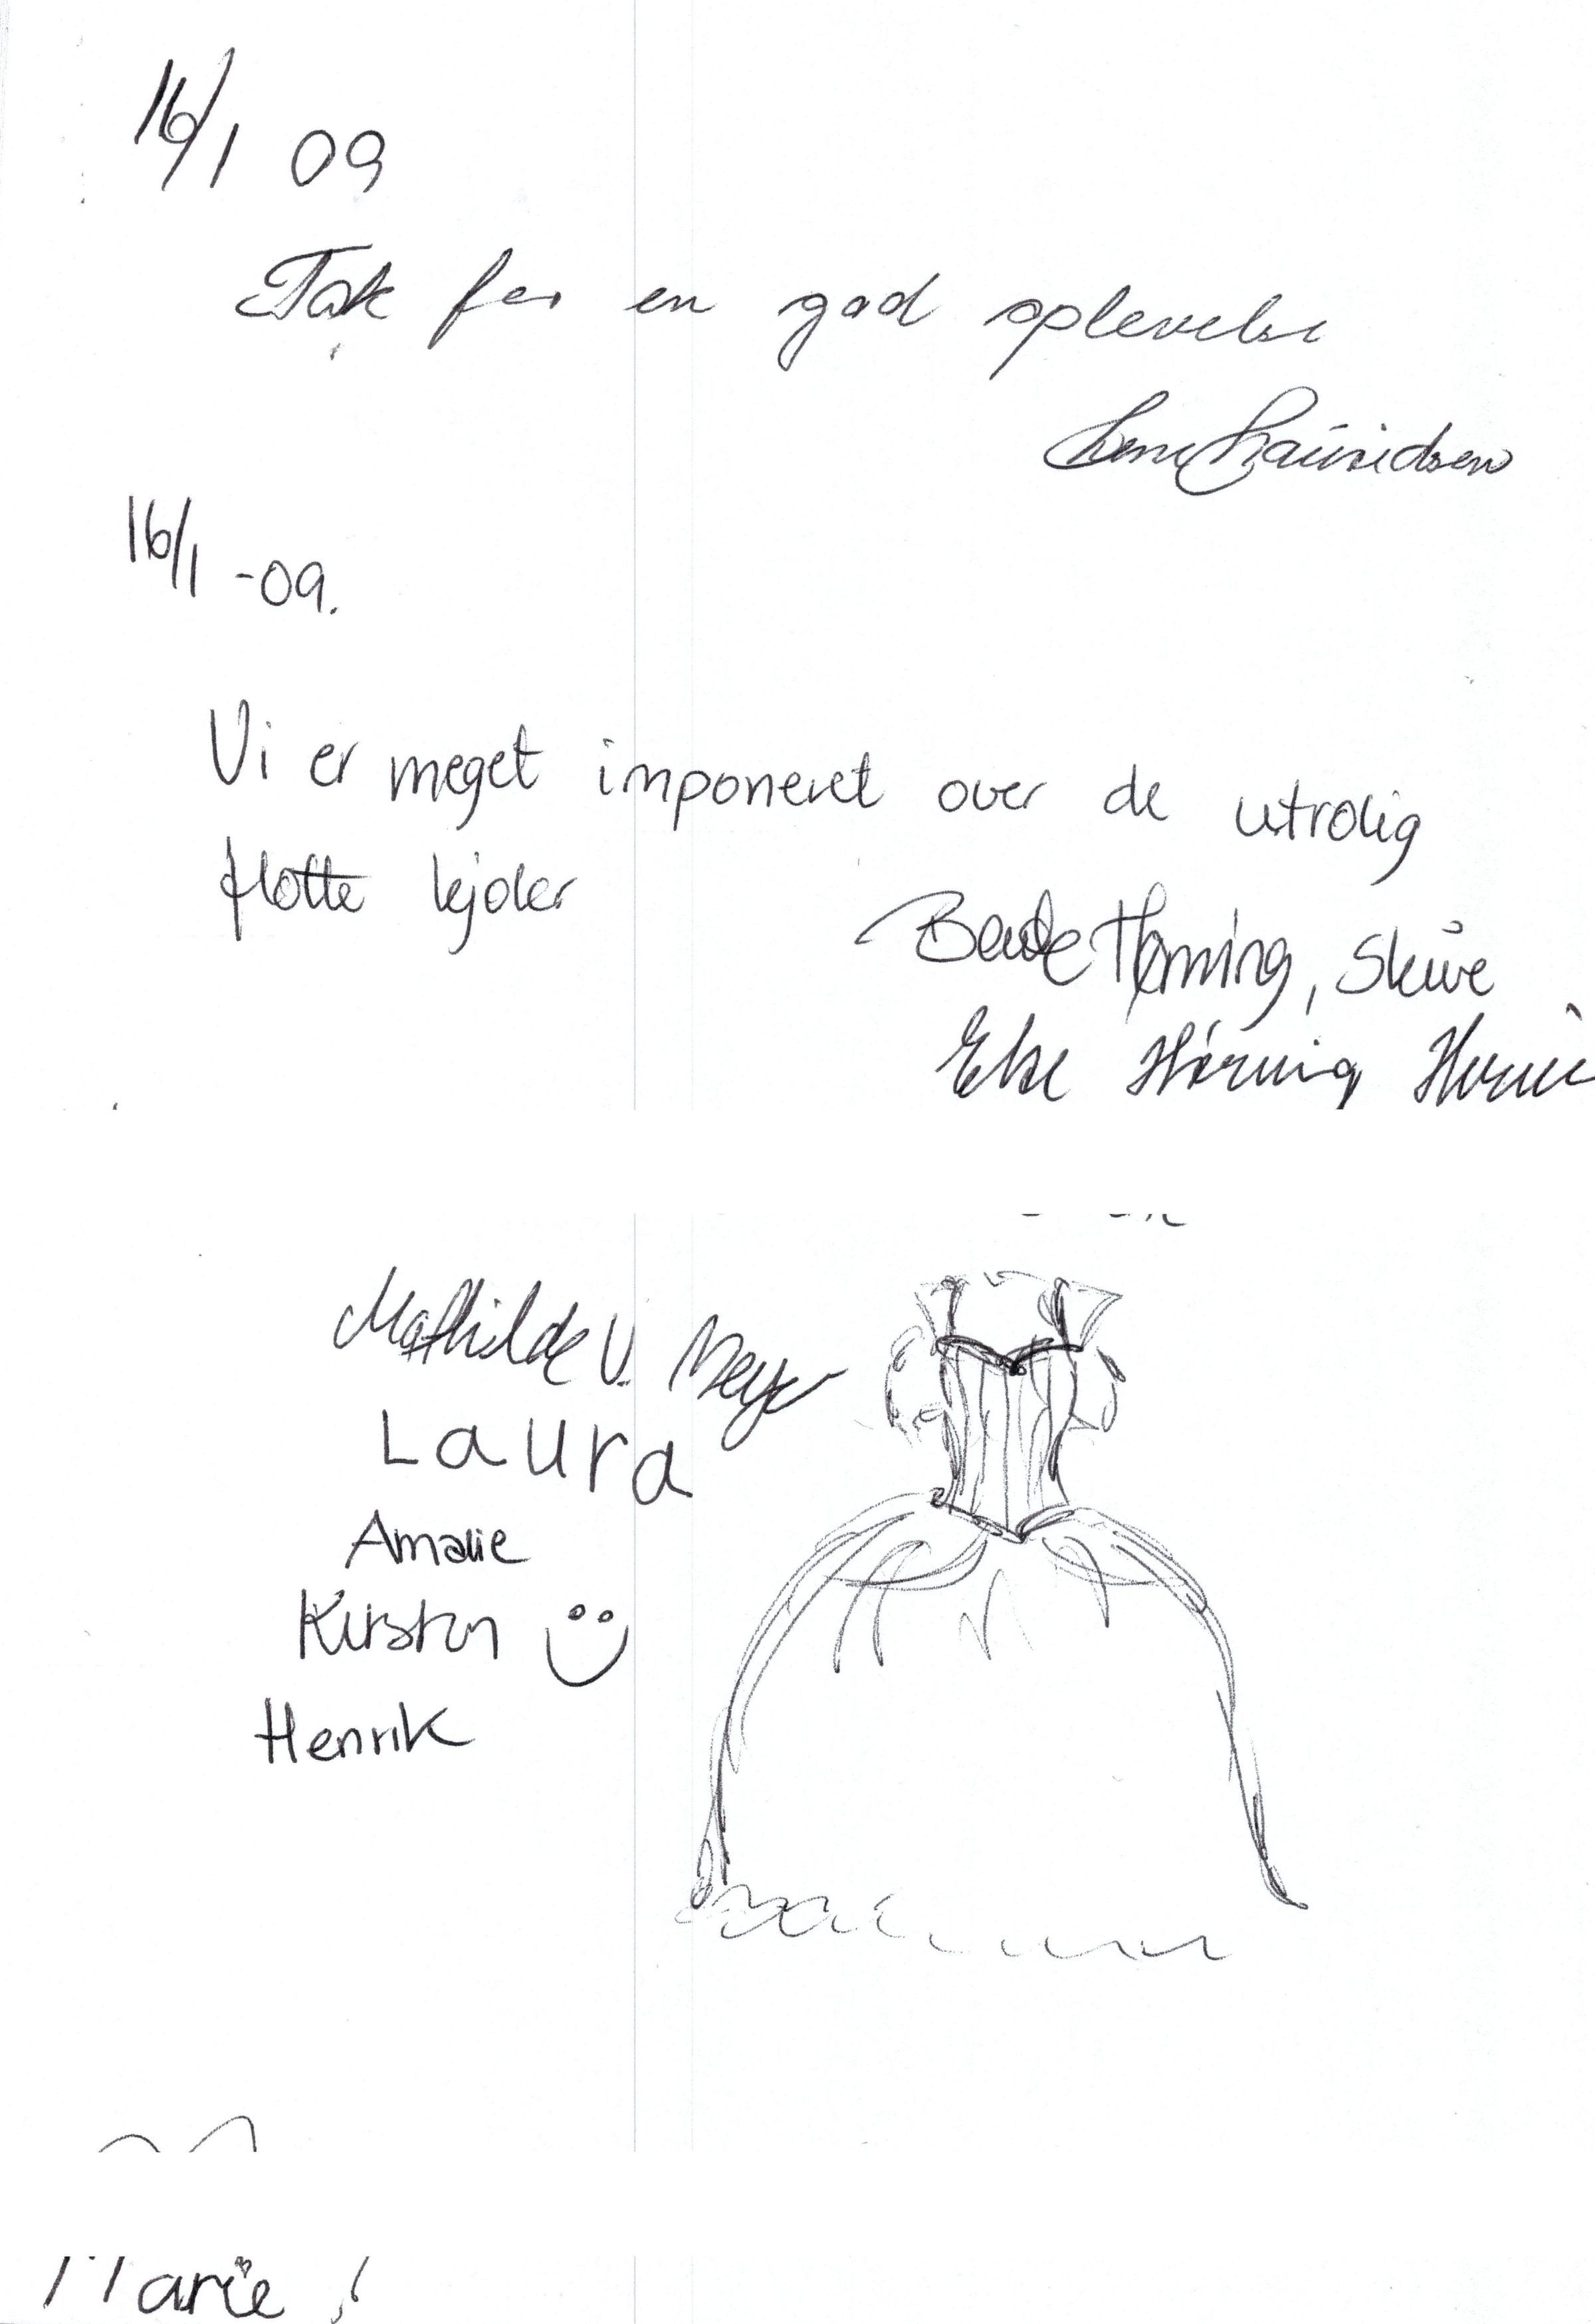 16/1 09
Tak for en god oplevelse
Lene Lauridsen
16/1 -09.
Vi er meget imponeret over de utrolig
flotte kjoler
Bente Hørning, Skive
Else Hørning
Mathilde V. Meyer
Laura
Amalie
Kirsten
Henrik
Marie!